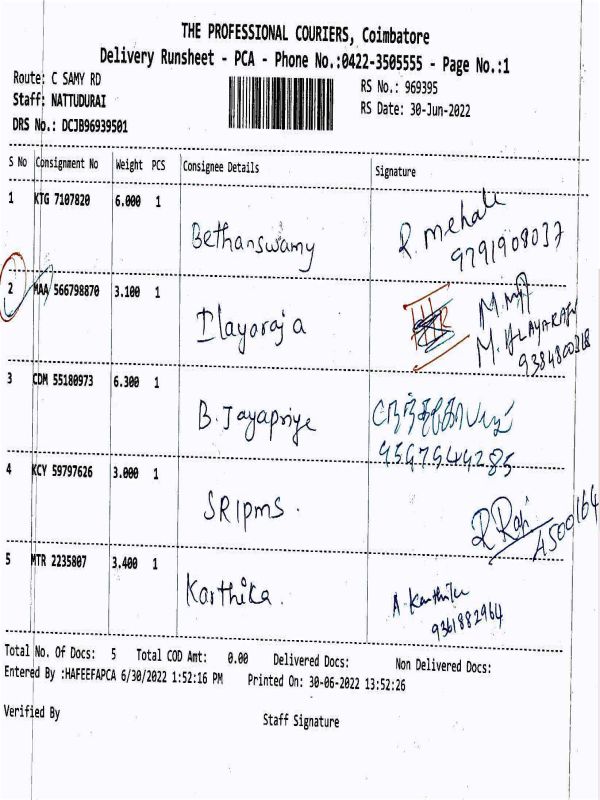 THE PROFESSIONAL COURIERS, Coimbatore
Delivery Runsheet - PCA - Phone No.:0422-3505555 - Page No.:1
Route: C SAMY RD
RS No.: 969395
Staff: NATTUDURAI
RS Date: 30-Jun-2022
DRS No.: DCJB96939501
S No Consignment No Weight PCS Consignee Details Signature
1 KTG 7107820 6.000 1
Bethanswamy
R. Mehala
9791908037
2 MAA 566798870 3.100 1
Ilayoraja
M.
M. ILAYARAJA
3 CDM 55180973 6.300 1
B. Jayapriye
9597549285
4 KCY 59797626 3.000 1
SRIPMS.
R Raj
4500164
5 MTR 2235807 3.400 1
Karthika.
A. Karthika
9361882964
Total No. Of Docs: 5 Total COD Amt: 0.00 Delivered Docs: Non Delivered Docs:
Entered By :HAFEEFAPCA 6/30/2022 1:52:16 PM Printed On: 30-06-2022 13:52:26
Verified By
Staff Signature